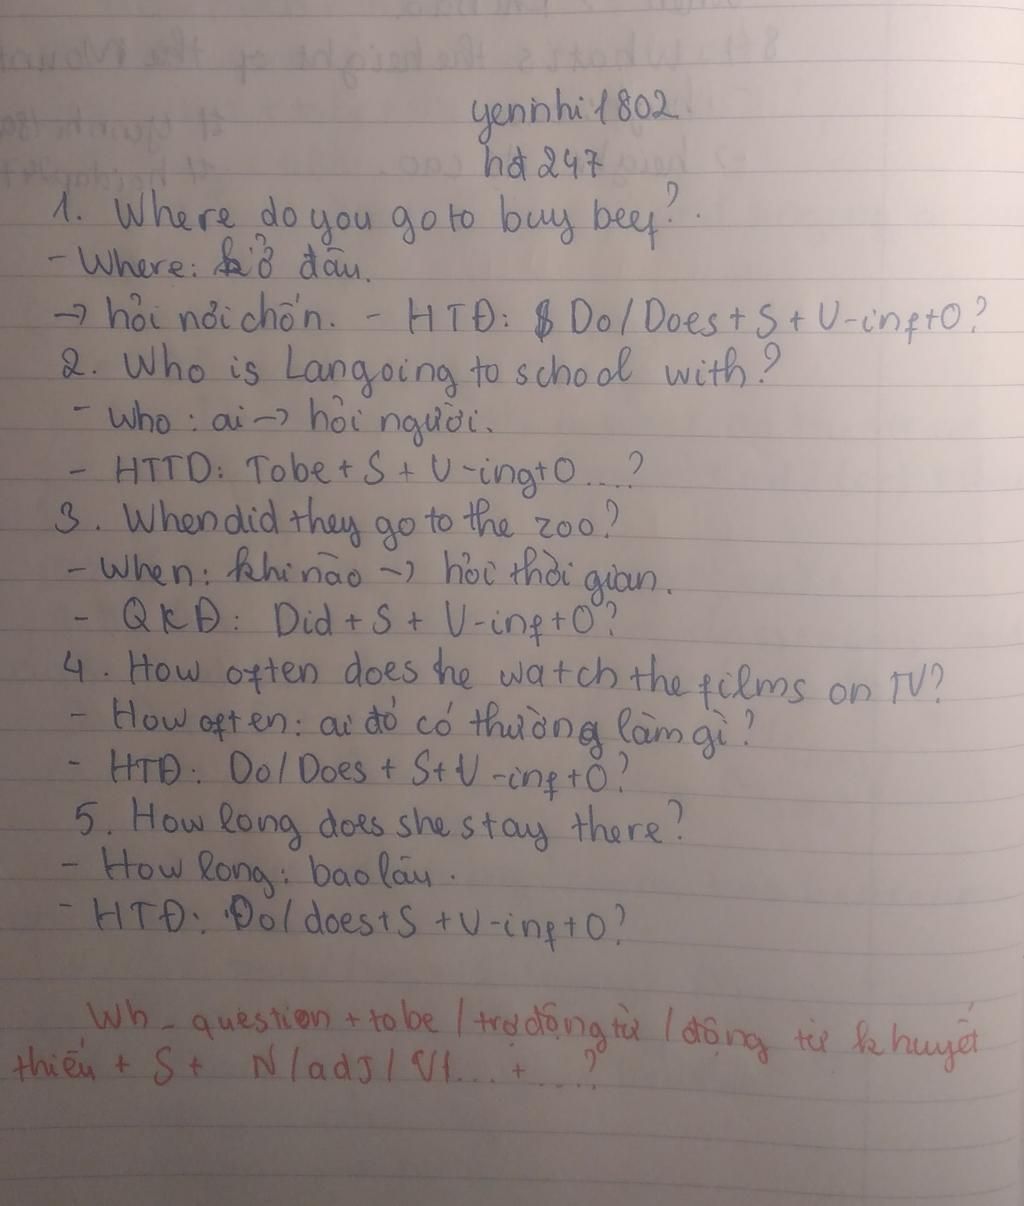 yennhi1802
hđ247
1. Where do you go to buy beef?.
- Where: ở đâu.
→ hỏi nơi chốn. - HTĐ: Do/Does + S + V-inf+O?
2. Who is Lan going to school with?
- Who: ai → hỏi người.
- HTTD: Tobe + S + V-ing+O....?
3. When did they go to the zoo?
- When: khi nào → hỏi thời gian.
- QKĐ: Did + S + V-inf+O?
4. How often does he watch the films on TV?
- How often: ai đó có thường làm gì?
- HTĐ: Do/Does + S+V-inf+O?
5. How long does she stay there?
- How long: bao lâu.
- HTĐ: Do/does+S +V-inf+O?
Wh - question + tobe / trợ động từ / động từ khuyết
thiếu + S + N/adj/V... + ....?